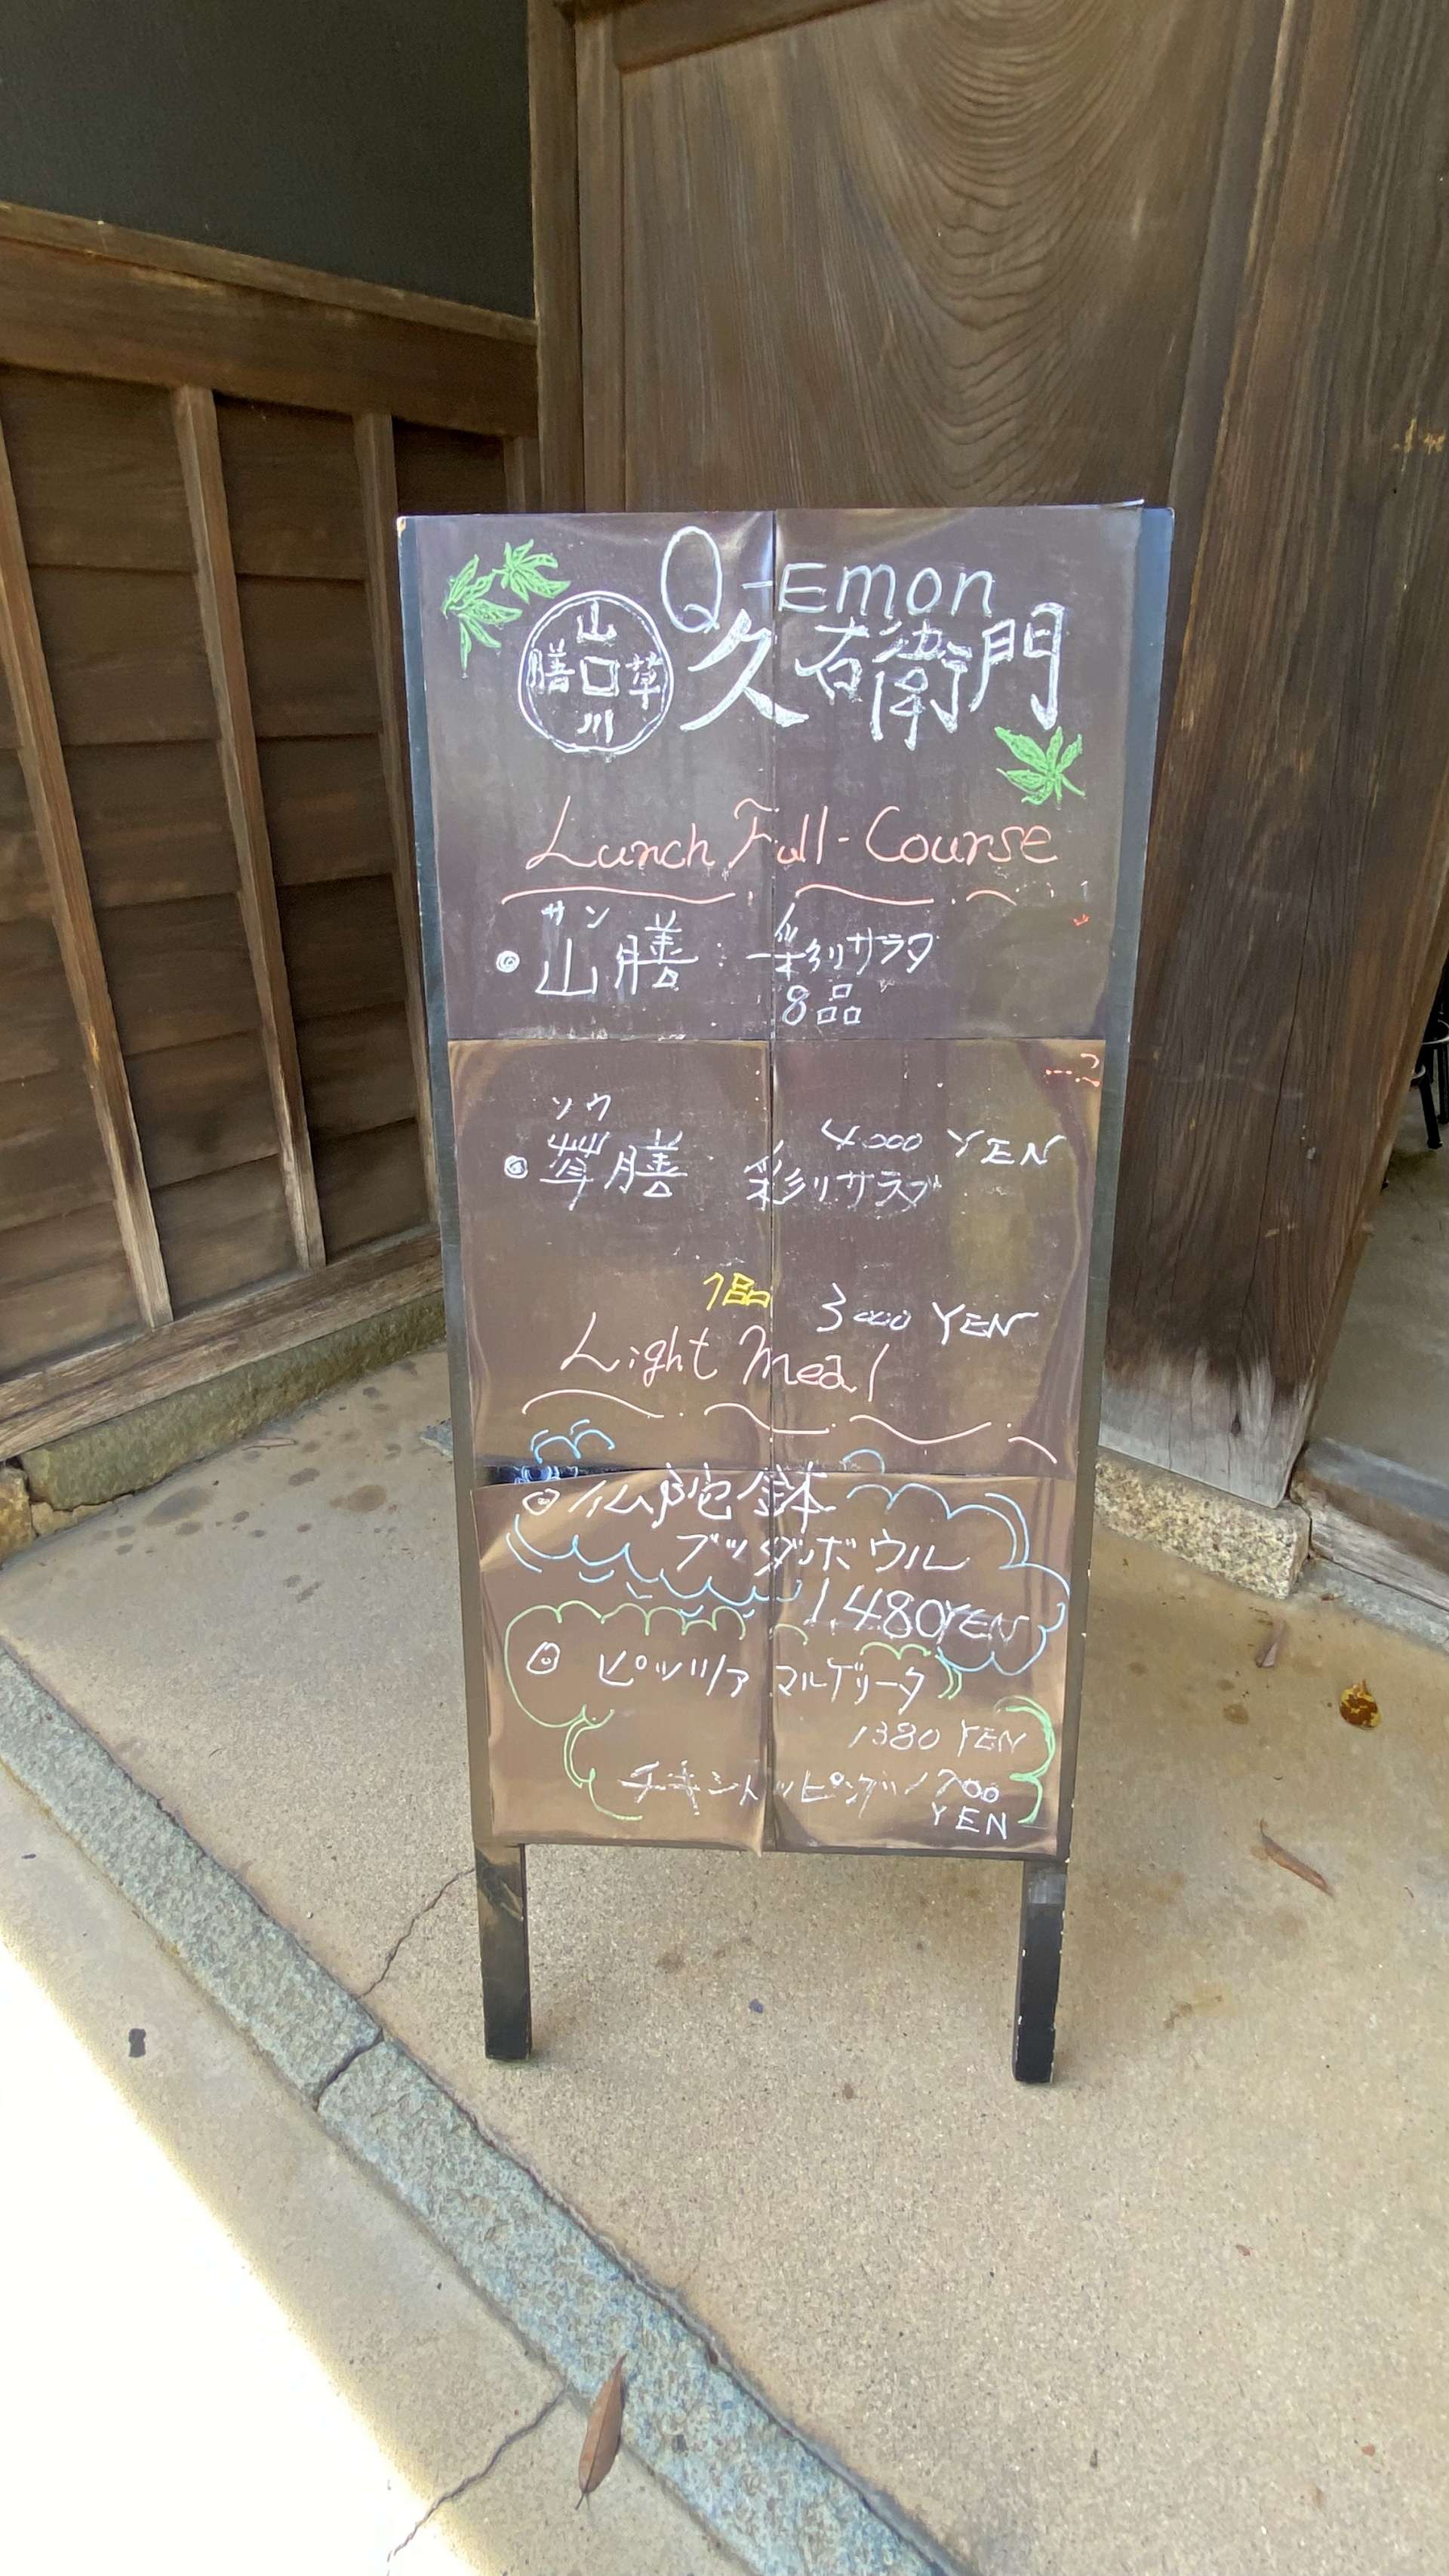 Q-Emon
山
膳口草
川
久右衛門
Lunch Full-Course
サン
山膳: 彩りサラダ
8品
4000 YEN
ソウ
草膳 彩りサラダ
7品
3000 YEN
Light Meal
仏陀鉢
ブッダボウル
1.480YEN
ピッツァ マルゲリータ
1380 YEN
チキントッピング 1700
YEN